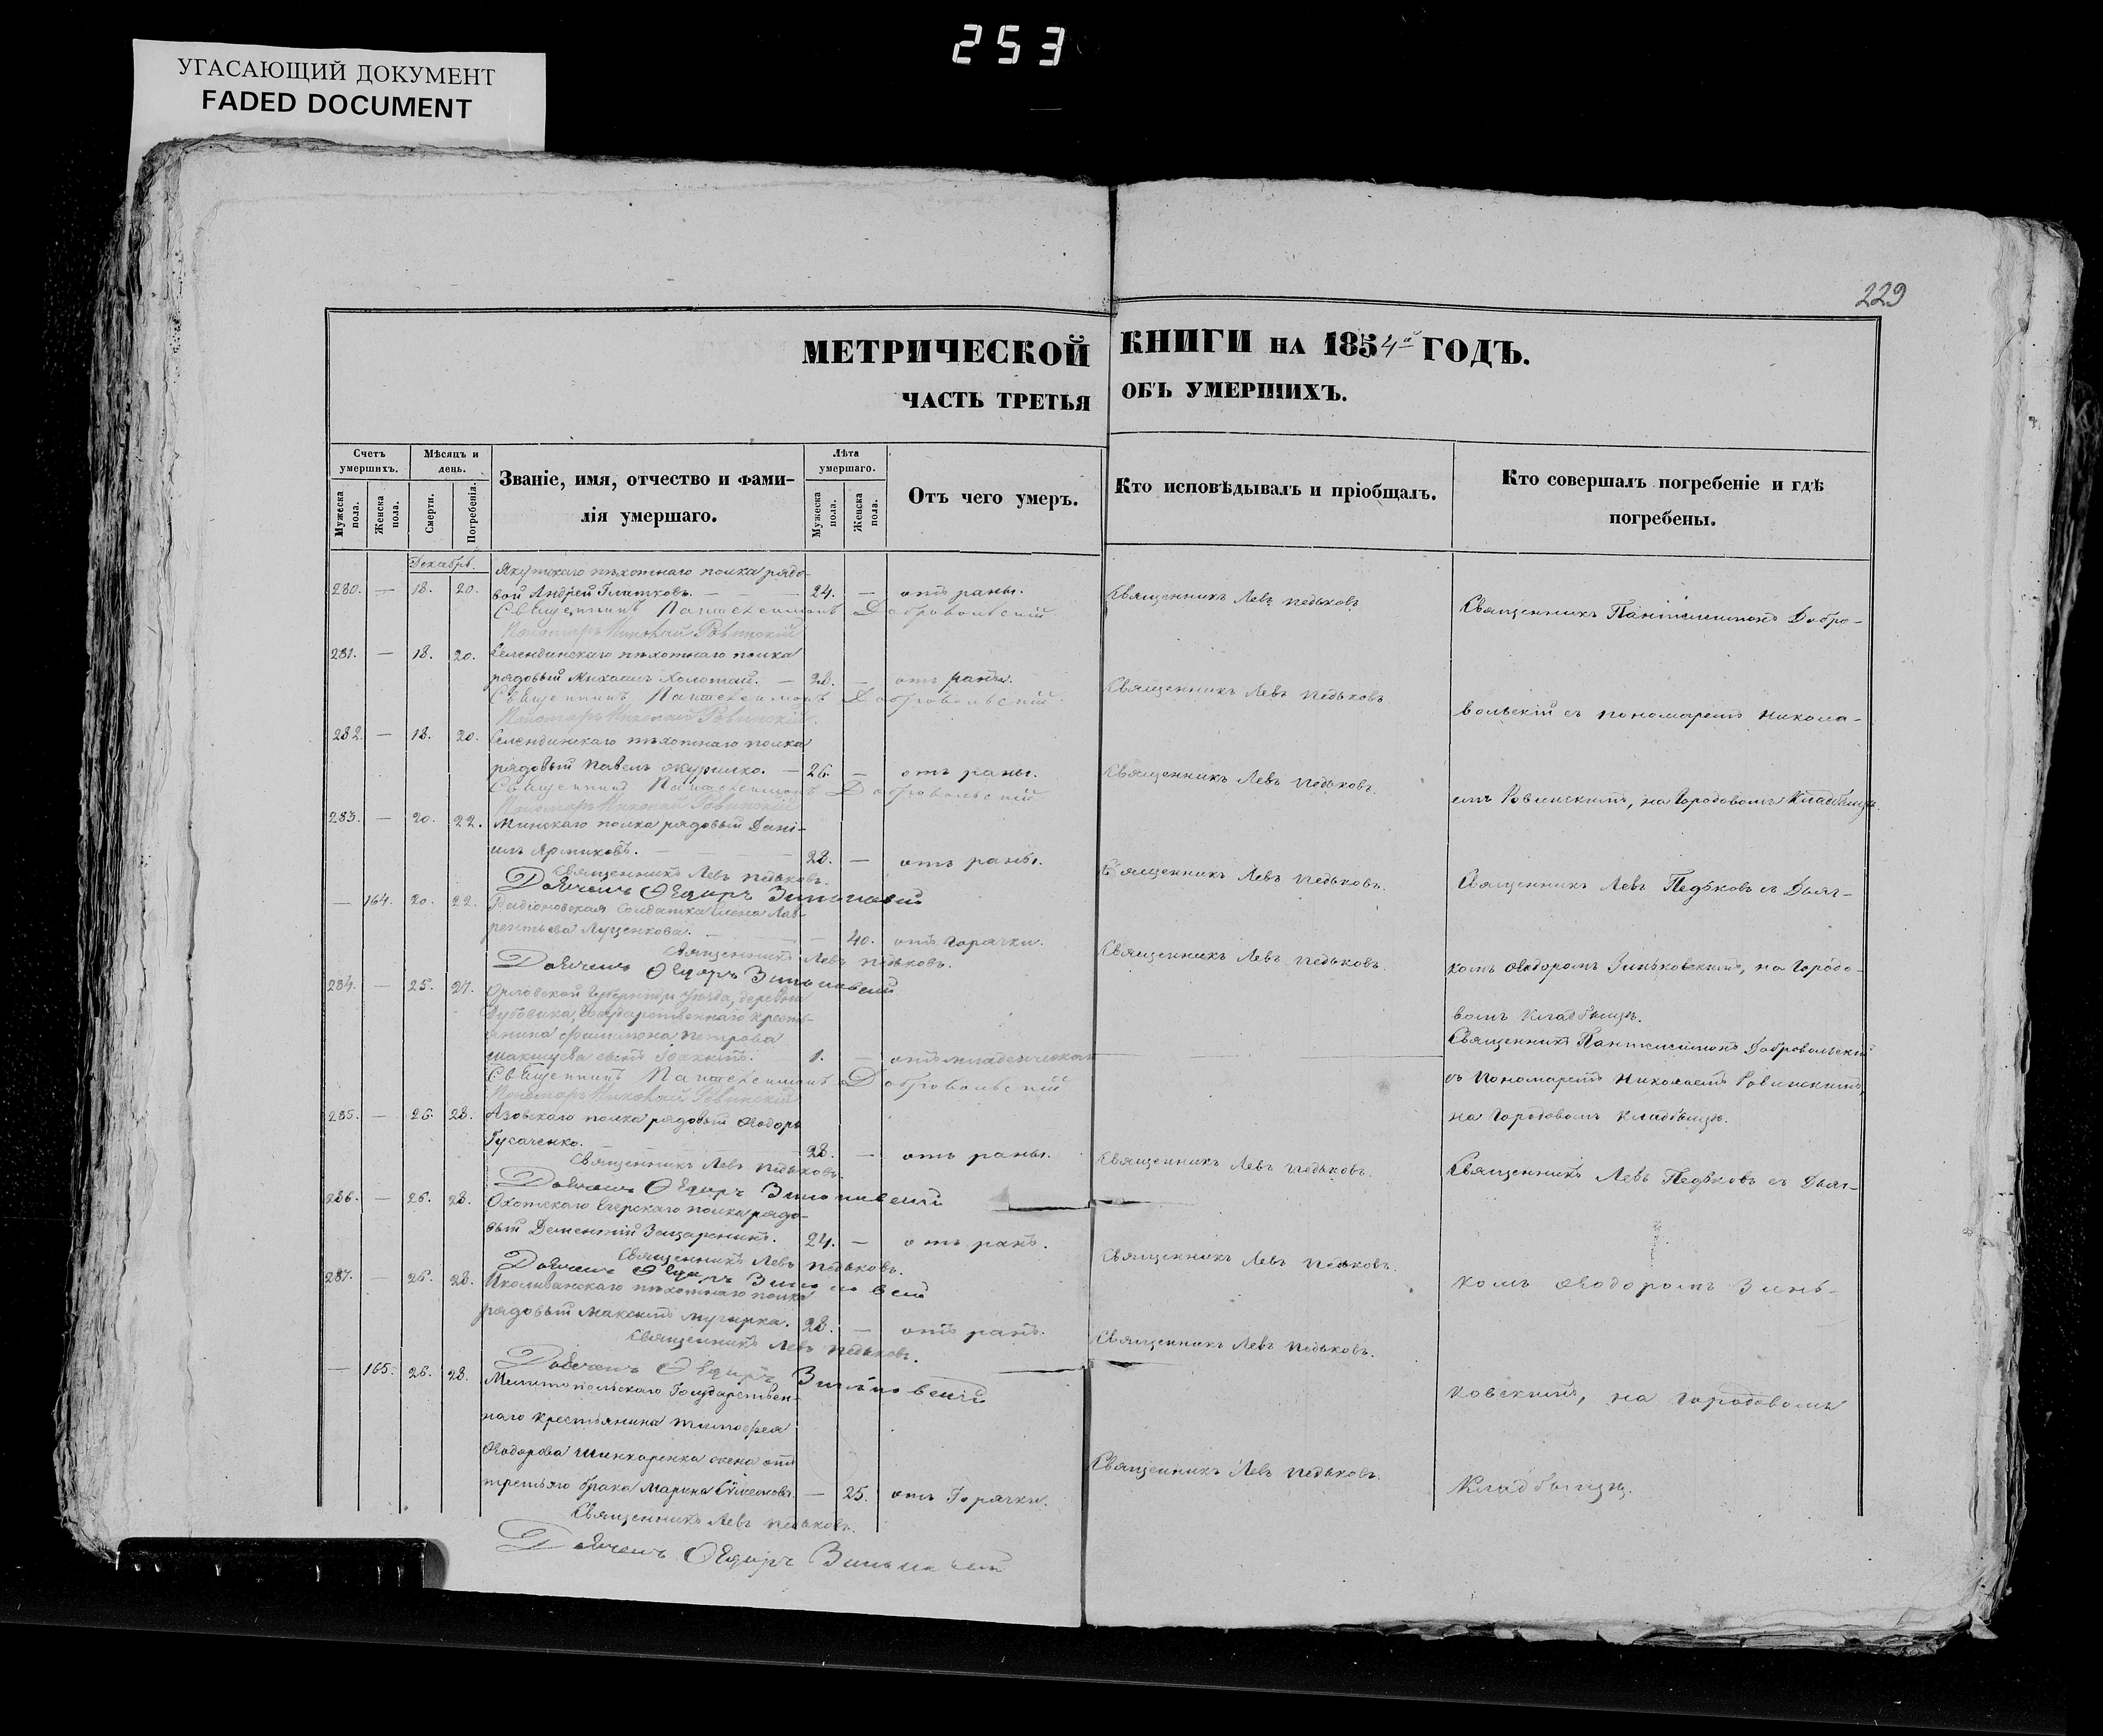 253
УГАСАЮЩИЙ ДОКУМЕНТ
FADED DOCUMENT
229
МЕТРИЧЕСКОЙ КНИГИ НА 1854й ГОДЪ.
ЧАСТЬ ТРЕТЬЯ ОБЪ УМЕРШИХЪ.
Счетъ умершихъ.
Мужеска пола.
Женска пола.
Мѣсяцъ и день.
Смерти.
Погребенія.
Званіе, имя, отчество и фами-
лія умершаго.
Лѣта умершаго.
Мужеска пола.
Женска пола.
Отъ чего умеръ.
Кто исповѣдывалъ и пріобщалъ.
Кто совершалъ погребеніе и гдѣ
погребены.
Декабрь.
Якутскаго пѣхотнаго полка рядо-
280. — 18. 20. вой Андрей Гнатковъ. — 24. — отъ раны. Священникъ Левъ Педьковъ Священникъ Пантелеимонъ Добро-
Священникъ Пантелеимонъ Добровольскій
Пономарь Николай Ровинскій
281. — 18. 20. Селенгинскаго пѣхотнаго полка
рядовый Михаилъ Холотай. — 28. — отъ раны. Священникъ Левъ Педьковъ
Священникъ Пантелеимонъ Добровольскій
вольскій съ пономаремъ Никола-
Пономарь Николай Ровинскій
282. — 18. 20. Селенгинскаго пѣхотнаго полка
рядовый Павелъ — 26. — отъ раны. Священникъ Левъ Педьковъ.
Священникъ Пантелеимонъ Добровольскій
емъ Ровинскимъ, на Городовомъ Кладбищѣ.
Пономарь Николай Ровинскій
283. — 20. 22. Минскаго полка рядовый Дані-
илъ Ярмиковъ. — 28. — отъ раны. Священникъ Левъ Педьковъ. Священникъ Левъ Педьковъ съ Дьяч-
Священникъ Левъ Педьковъ.
Дьячекъ Ѳедоръ Зиньковскій
— 164. 20. 22. солдатка Елена Лав-
рентьева Луценкова. — 40. отъ горячки. Священникъ Левъ Педьковъ.
Священникъ Левъ Педьковъ.
комъ Ѳеодоромъ Зиньковскимъ, на Городо-
Дьячекъ Ѳедоръ Зиньковскій
284. — 25. 27. Орловской Губерніи, и уѣзда, деревни
вомъ Кладбищѣ.
Государственнаго кресть-
янина Филимона Петрова
сынъ Іоакимъ. — 1. — отъ младенческой
Священникъ Пантелеимонъ Добровольскій
Священникъ Пантелеимонъ Добровольскій
съ Пономаремъ Николаемъ Ровинскимъ,
Пономарь Николай Ровинскій
на Городовомъ Кладбищѣ.
285. — 26. 28. Азовскаго полка рядовый Ѳеодоръ
Гусаченко. — 28. — отъ раны. Священникъ Левъ Педьковъ. Священникъ Левъ Педьковъ съ Дьяч-
Священникъ Левъ Педьковъ.
Дьячекъ Ѳедоръ Зиньковскій
286. — 26. 28. Охотскаго Егерскаго полка рядо-
вый Дементій 24. — отъ ранъ. Священникъ Левъ Педьковъ.
Священникъ Левъ Педьковъ.
Дьячекъ Ѳедоръ Зиньковскій
комъ Ѳеодоромъ Зинь-
287. — 26. 28. пѣхотнаго полка
рядовый Максимъ Мугирка. 28. — отъ ранъ. Священникъ Левъ Педьковъ.
Священникъ Левъ Педьковъ.
Дьячекъ Ѳедоръ Зиньковскій
ковскимъ, на Городовомъ
— 165. 26. 28. Мелитопольскаго Государствен-
наго крестьянина Тимофея
Ѳеодорова Шинкаренка жена отъ
третьяго брака Марина — 25. отъ Горячки. Священникъ Левъ Педьковъ. Кладбищѣ.
Священникъ Левъ Педьковъ.
Дьячекъ Ѳедоръ Зиньковскій